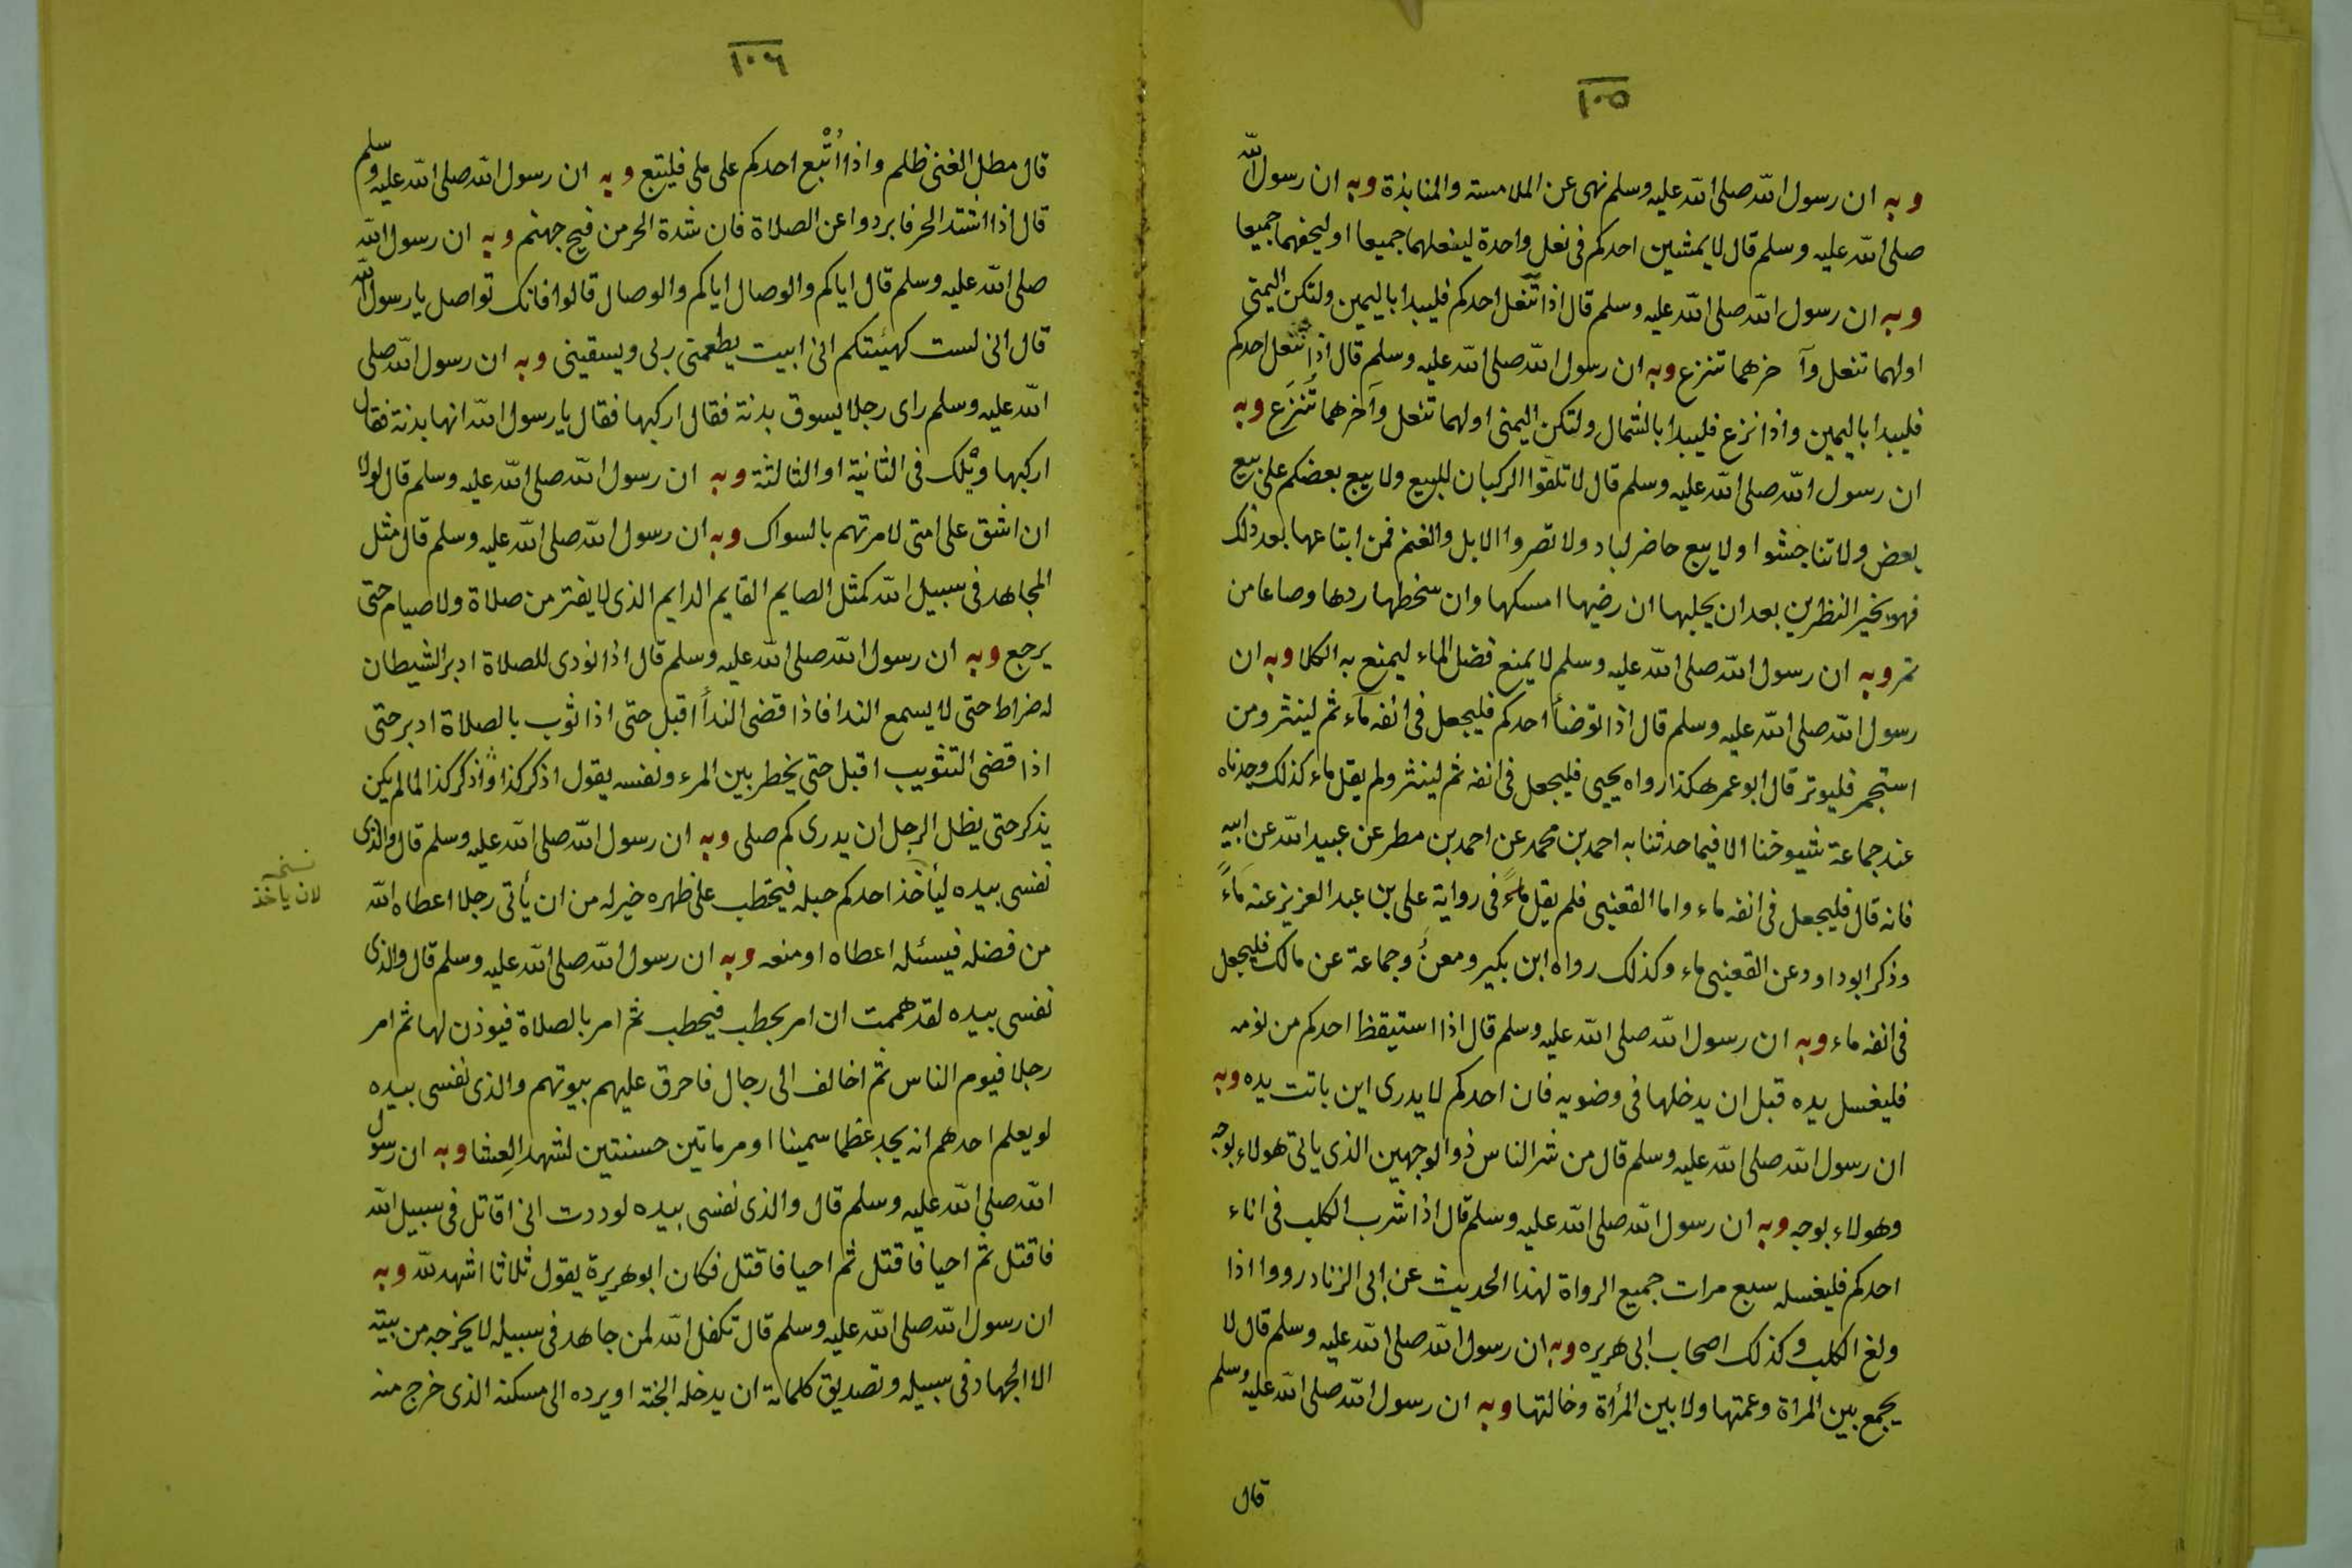 ١٠٥
وبه ان رسول الله صلى الله عليه وسلم نهى عن الملامسة والمنابذة وبه ان رسول الله
صلى الله عليه وسلم قال لا يمشين احدكم فى نعل واحدة لينعلهما جميعا او ليحفهما جميعا
وبه ان رسول الله صلى الله عليه وسلم قال اذا تنعل احدكم فليبدا باليمين ولتكن اليمنى
اولهما تنعل وآخرهما تنزع وبه ان رسول الله صلى الله عليه وسلم قال اذا تنعل احدكم
فليبدا باليمين واذا نزع فليبدا بالشمال ولتكن اليمنى اولهما تنعل وآخرهما تُنزَع وبه
ان رسول الله صلى الله عليه وسلم قال لا تلقوا الركبان للبيع ولا يبع بعضكم على بيع
بعض ولا تناجشوا ولا يبع حاضر لباد ولا تصروا الابل والغنم فمن ابتاعها بعد ذلك
فهو بخير النظرين بعد ان يحلبها ان رضيها امسكها وان سخطها ردها وصاعا من
تمر وبه ان رسول الله صلى الله عليه وسلم لا يمنع فضل الماء ليمنع به الكلا وبه ان
رسول الله صلى الله عليه وسلم قال اذا توضأ احدكم فليجعل فى انفه مآء ثم لينثر ومن
استجمر فليوتر قال ابو عمر هكذا رواه يحيى فليجعل فى انفه ثم لينثر ولم يقل ماء كذلك وجدناه
عند جماعة شيوخنا الا فيما حدثنا به احمد بن محمد عن احمد بن مطر عن عبيد الله عن ابيه
فانه قال فليجعل فى انفه ماء واما القعنبى فلم يقل ماءً فى رواية على بن عبد العزيز عنه مَاءً
وذكر ابو داود عن القعنبى ماء وكذلك رواه ابن بكير ومعنُ وجماعة عن مالك فليجعل
فى انفه ماء وبه ان رسول الله صلى الله عليه وسلم قال اذا استيقظ احدكم من نومه
فليغسل يده قبل ان يدخلها فى وضويه فان احدكم لا يدرى اين باتت يده وبه
ان رسول الله صلى الله عليه وسلم قال من شر الناس ذو الوجهين الذى ياتى هولاء بوجه
وهولاء بوجه وبه ان رسول الله صلى الله عليه وسلم قال اذا شرب الكلب فى اناء
احدكم فليغسله سبع مرات جميع الرواة لهذا الحديث عن ابى الزناد رووا اذا
ولغ الكلب وكذلك اصحاب ابى هريره وبه ان رسول الله صلى الله عليه وسلم قال لا
يجمع بين المراة وعمتها ولا بين المرأة وخالتها وبه ان رسول الله صلى الله عليه وسلم
قال
١٠٦
قال مطل الغنى ظلم واذا اُتْبع احدكم على ملى فليتبع وبه ان رسول الله صلى الله عليه وسلم
قال اذا اشتد الحر فابردوا عن الصلاة فان شدة الحر من فيح جهنم وبه ان رسول الله
صلى الله عليه وسلم قال اياكم والوصال اياكم والوصال قالوا فانك تواصل يا رسول الله
قال انى لست كهيئتكم انى ابيت يطعمنى ربى ويسقينى وبه ان رسول الله صلى
الله عليه وسلم راى رجلا يسوق بدنة فقال اركبها فقال يا رسول الله انها بدنة فقال
اركبها ويْلك فى الثانية او الثالثة وبه ان رسول الله صلى الله عليه وسلم قال لولا
ان اشق على امتى لامرتهم بالسواك وبه ان رسول الله صلى الله عليه وسلم قال مثل
المجاهد فى سبيل الله كمثل الصايم القايم الدايم الذى لا يفتر من صلاة ولا صيام حتى
يرجع وبه ان رسول الله صلى الله عليه وسلم قال اذا نودى للصلاة ادبر الشيطان
له ضراط حتى لا يسمع الندا فاذا قضى الندأ اقبل حتى اذا ثوب بالصلاة ادبر حتى
اذا قضى التثويب اقبل حتى يخطر بين المرء ونفسه يقول اذكر كذا واذكر كذا لما لم يكن
يذكر حتى يظل الرجل ان يدرى كم صلى وبه ان رسول الله صلى الله عليه وسلم قال والذى
نفسى بيده ليأخذ احدكم حبله فيحتطب على ظهره خير له من ان يأتى رجلا اعطاه الله
نسخه
لان ياخذ
من فضله فيسئله اعطاه او منعه وبه ان رسول الله صلى الله عليه وسلم قال والذى
نفسى بيده لقد هممت ان امر بحطب فيحطب ثم امر بالصلاة فيوذن لها ثم امر
رجلا فيوم الناس ثم اخالف الى رجال فاحرق عليهم بيوتهم والذى نفسى بيده
لو يعلم احدهم انه يجد عظما سمينا او مرماتين حسنتين لشهد العِشا وبه ان رسول
الله صلى الله عليه وسلم قال والذى نفسى بيده لوددت انى اقاتل فى سبيل الله
فاقتل ثم احيا فاقتل ثم احيا فاقتل فكان ابو هريرة يقول ثلاثا اشهد لله وبه
ان رسول الله صلى الله عليه وسلم قال تكفل الله لمن جاهد فى سبيله لا يخرجه من بيته
الا الجهاد فى سبيله وتصديق كلماته ان يدخله الجنة او يرده الى مسكنه الذى خرج منه